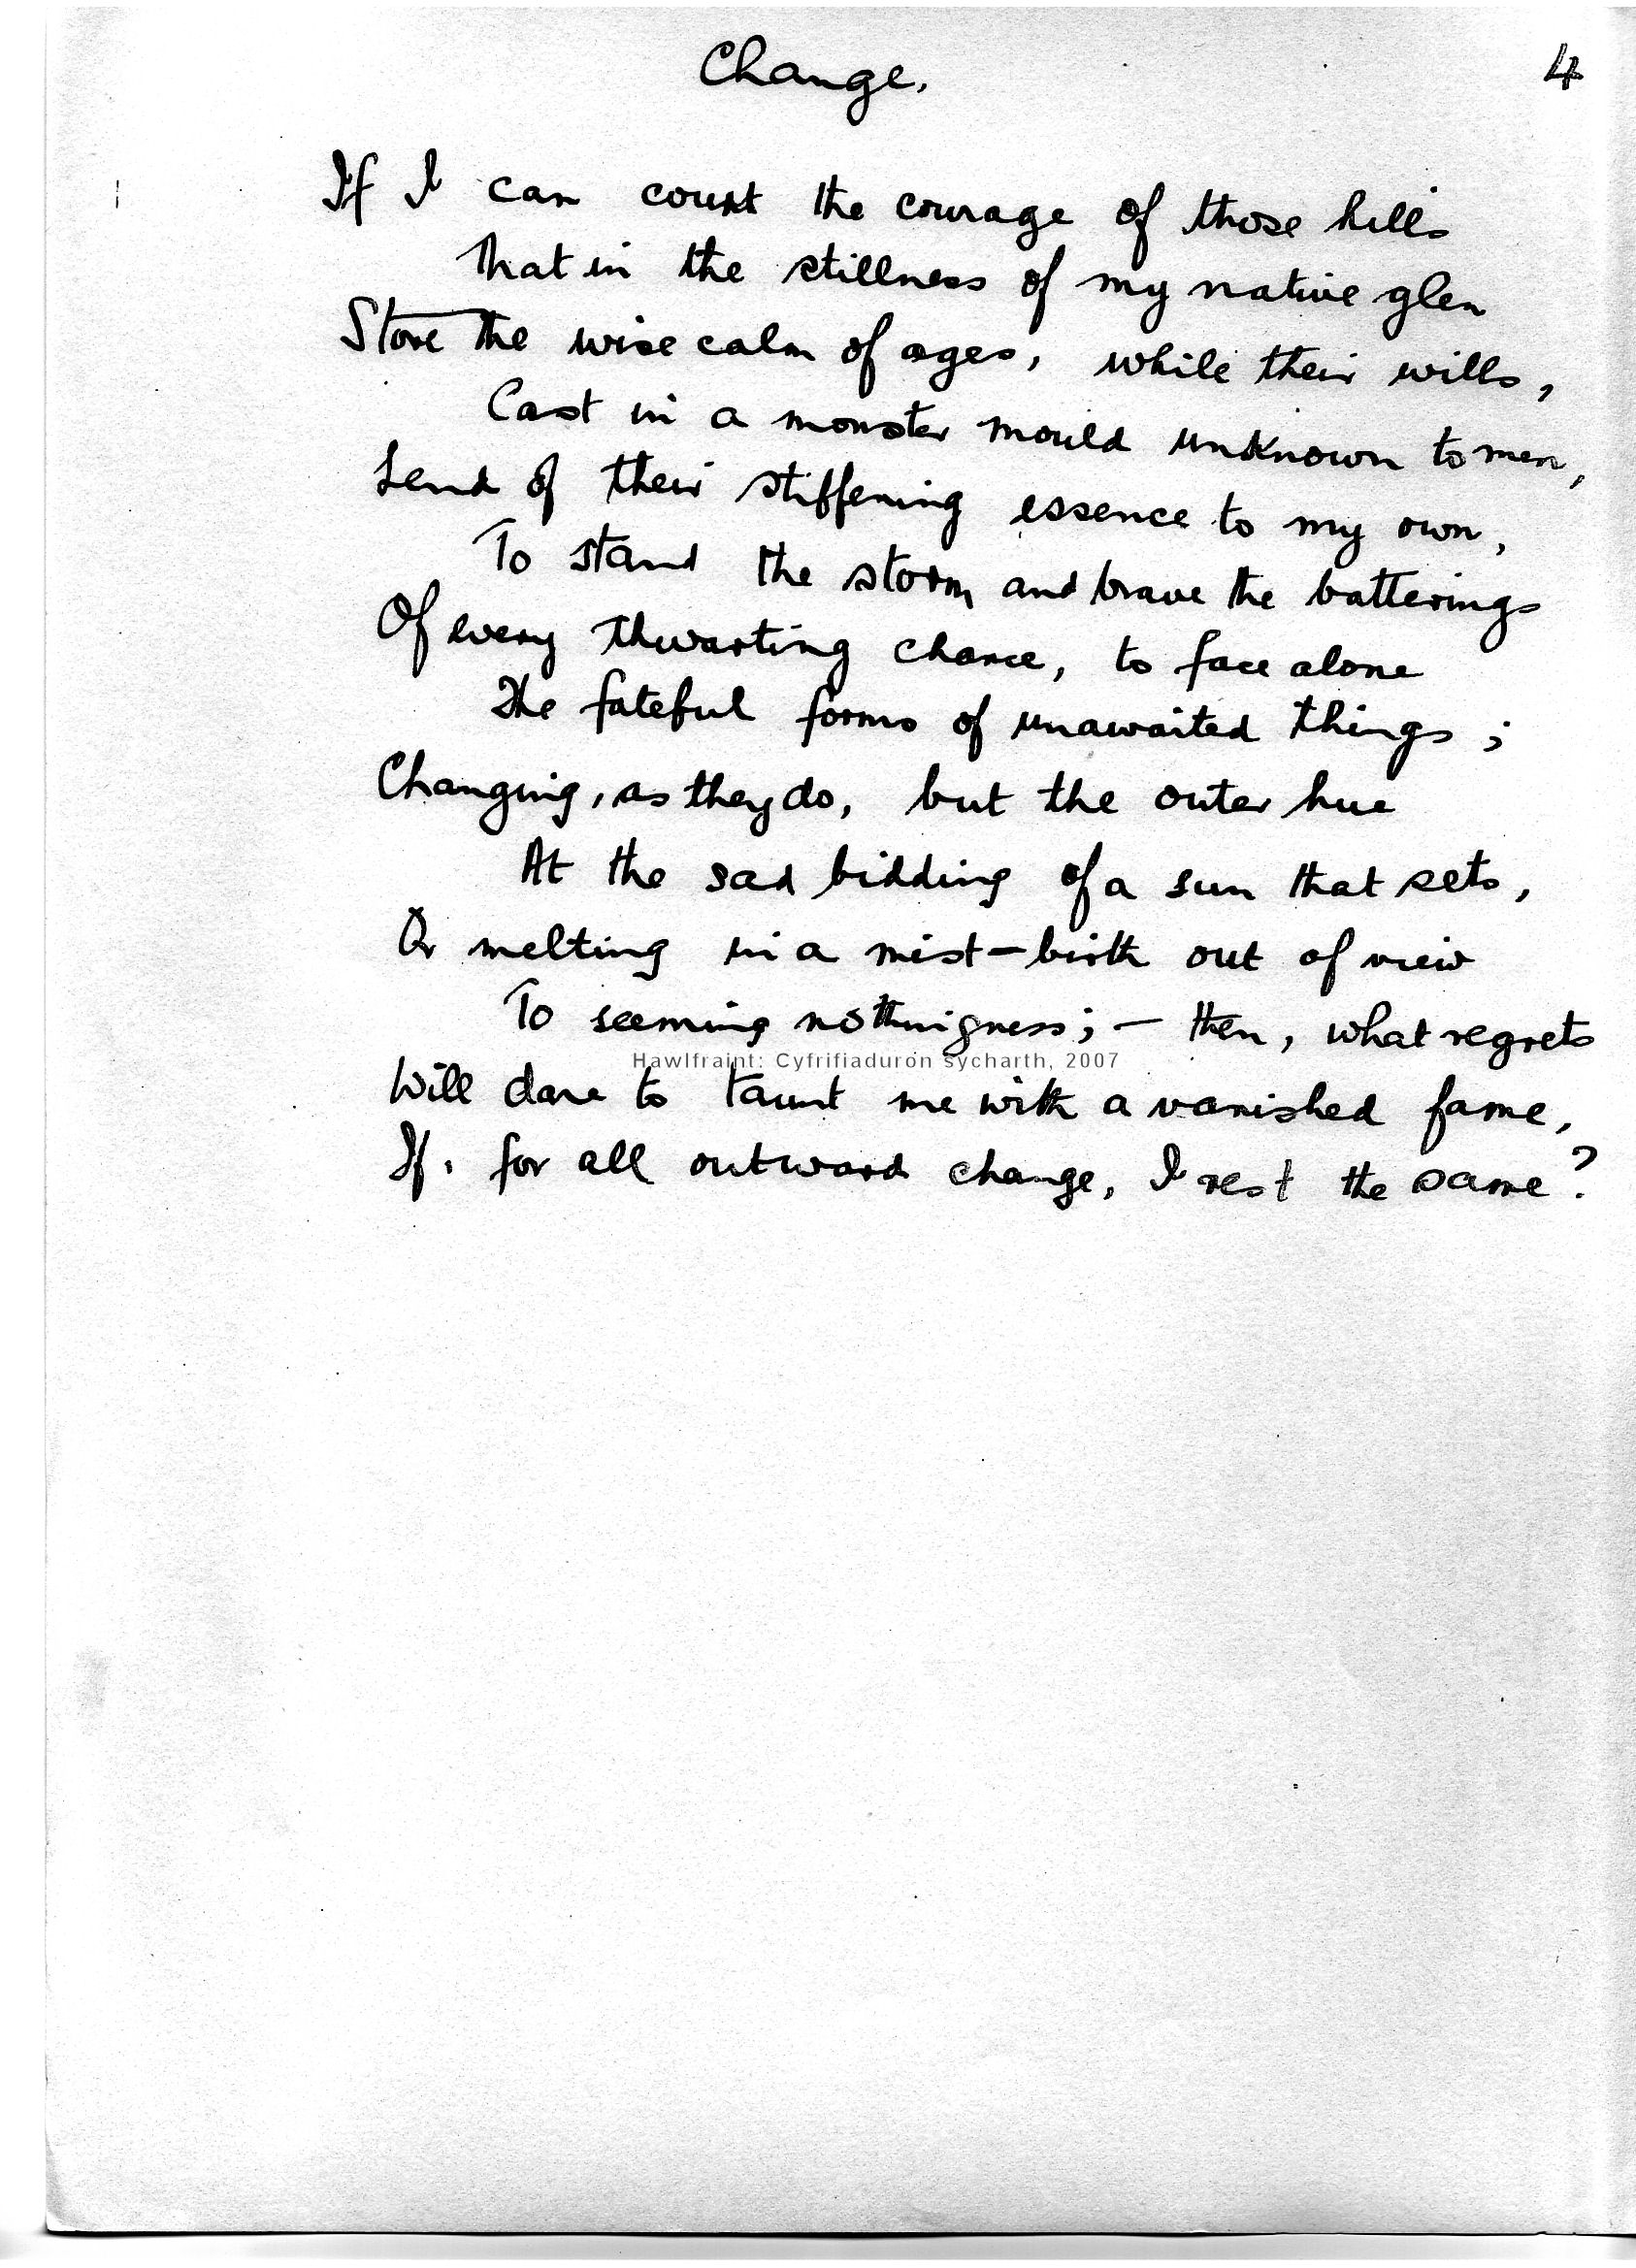 Change.
4
If I can count the courage of those hills
That in the stillness of my native glen
Store the wise calm of ages, while their wills,
Cast in a monster mould unknown to men,
Lend of their stiffening essence to my own,
To stand the storm and brave the batterings
Of every thwarting chance, to face alone
The fateful forms of unawaited things;
Changing, as they do, but the outer hue
At the sad bidding of a sun that sets,
Or melting in a mist-birth out of view
To seeming nothingness; — then, what regrets
Hawlfraint: Cyfrifiaduron Sycharth, 2007
Will dare to taunt me with a vanished fame,
If, for all outward change, I rest the same?